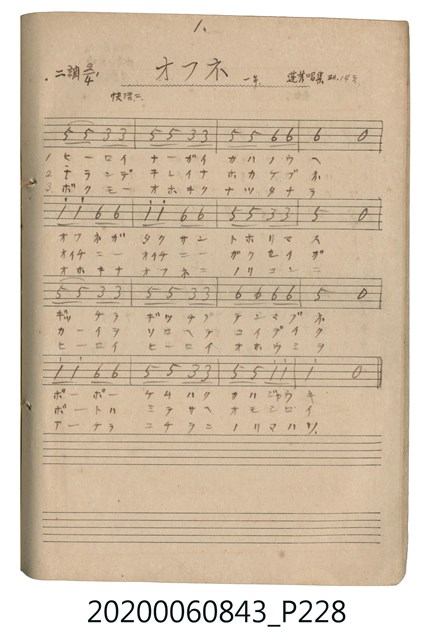 1.
二調 2/4 オフネ 一年.
快活ニ
5 5 3 3 5 5 3 3 5 5 6 6 6 0
1 ヒーロイ ナーガイ カハノウヘ
2 ナランデ キレイナ ホカケブネ
3. ボクモー オホキク ナツタナラ
i i 6 6 i i 6 6 5 5 3 3 5 0
オフネガ タクサン トホリマス
オイチニー オイチニー ガクセイガ
オホキナ オフネニ ノリコンデ
5 5 3 3 5 5 3 3 6 6 6 6 5 0
ギッチラ ギッチラ テンマブネ
カーイヲ ソロヘテ コイデイク
ヒーロイ ヒーロイ オホウミヲ
i i 6 6 5 5 3 3 5 5 i i i 0
ポーポー ケムハク カハジョウキ
ボートハ ミテサヘ オモシロイ
アーチラ コチラニ ノリマハソ.
20200060843_P228